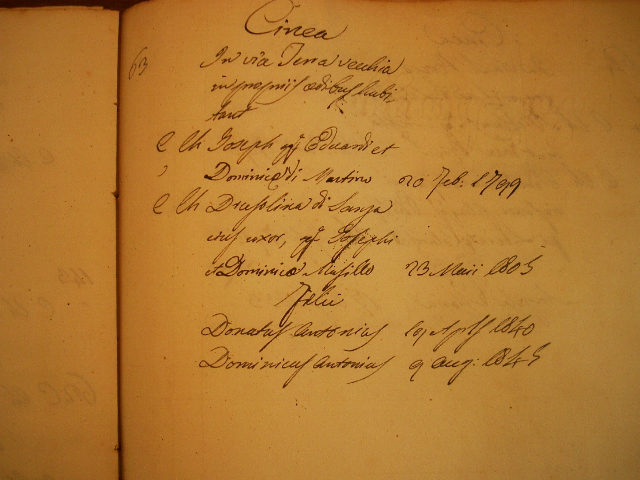 Cinea
63 In via Terra vecchia
in propriis ædibus habi
tant
C Ch Joseph qm Eduardi et
Dominicæ di Martino 20 Feb: 1799
C Ch Drusolina di Sanza
eius uxor, qm Josephi
et Dominicæ Masillo 23 Maii 1805
Filii
Donatus Antonius 19 Aplis 1840
Dominicus Antonius 9 Aug: 1845